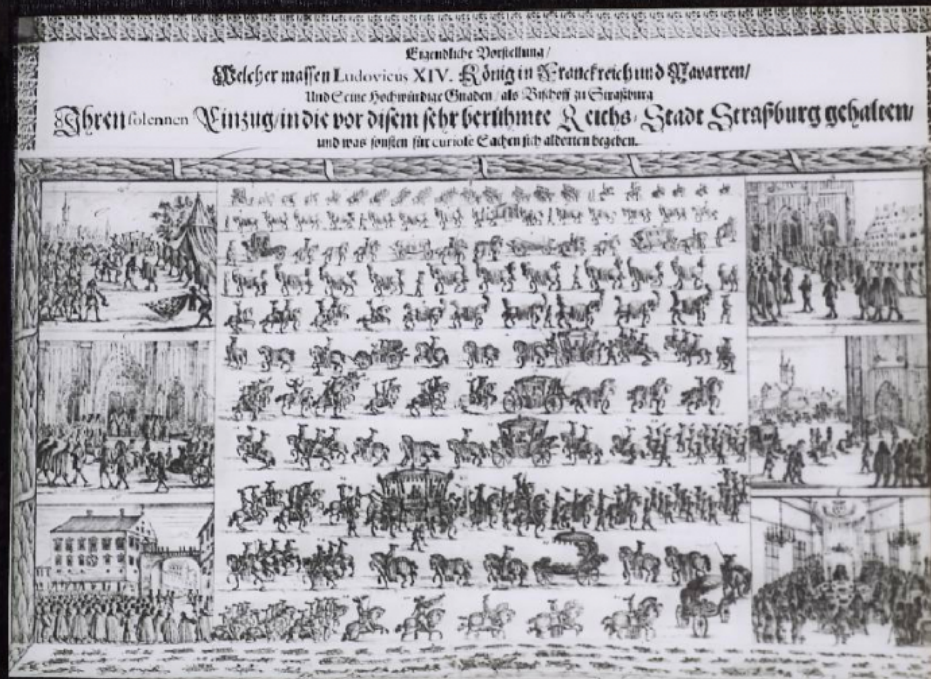 Eigendliche Vorstellung/
Welcher massen Ludovicus XIV. König in Franckreich und Navarren/
Und Seine Hochwürdige Gnaden/ als Bischoff zu Straßburg
Ihren solennen Einzug/ in die vor disem sehr berühmte Reichs-Stadt Straßburg gehalten/
und was sonsten für curiose Sachen sich alldorten begeben.